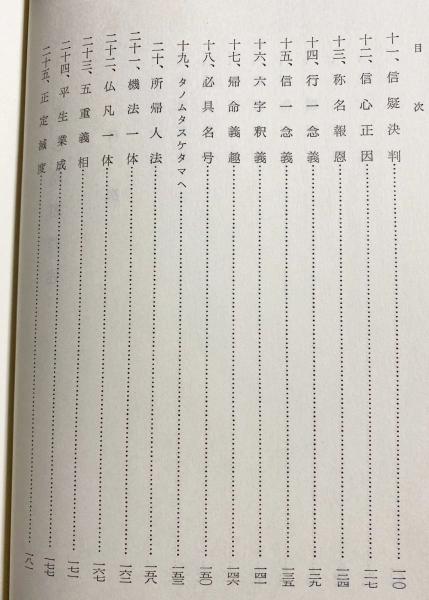 目次
十一、信疑決判……一一〇
十二、信心正因……一一七
十三、称名報恩……一二四
十四、行一念義……一二九
十五、信一念義……一三五
十六、六字釈義……一四一
十七、帰命義趣……一四六
十八、必具名号……一五〇
十九、タノムタスケタマヘ……一五三
二十、所帰人法……一五八
二十一、機法一体……一六二
二十二、仏凡一体……一六七
二十三、五重義相……一七一
二十四、平生業成……一七七
二十五、正定滅度……一八一